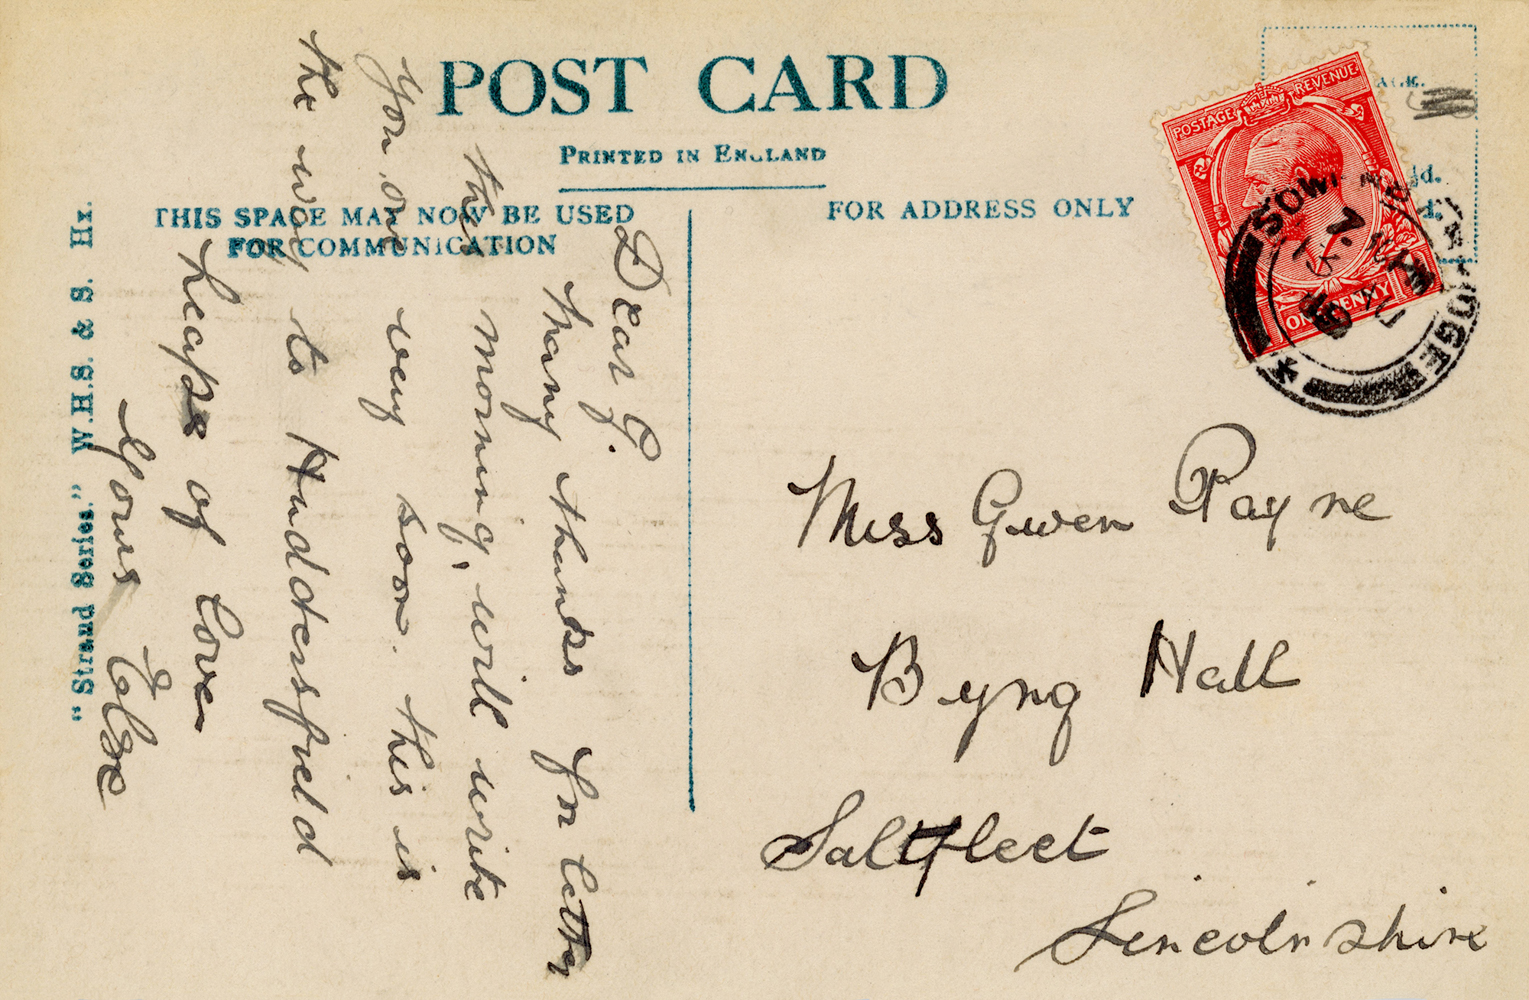 POST CARD
PRINTED IN ENGLAND
THIS SPACE MAY NOW BE USED
FOR COMMUNICATION
FOR ADDRESS ONLY
"Strand Series." W.H.S. & S. Hx.
POSTAGE REVENUE
ONE PENNY
SOWERBY BRIDGE
Dear G.
Many thanks for letter
this morning, will write
you one very soon. this is
the way to Huddersfield
heaps of love
Yours Elsie
Miss Gwen Payne
Byng Hall
Saltfleet
Lincolnshire